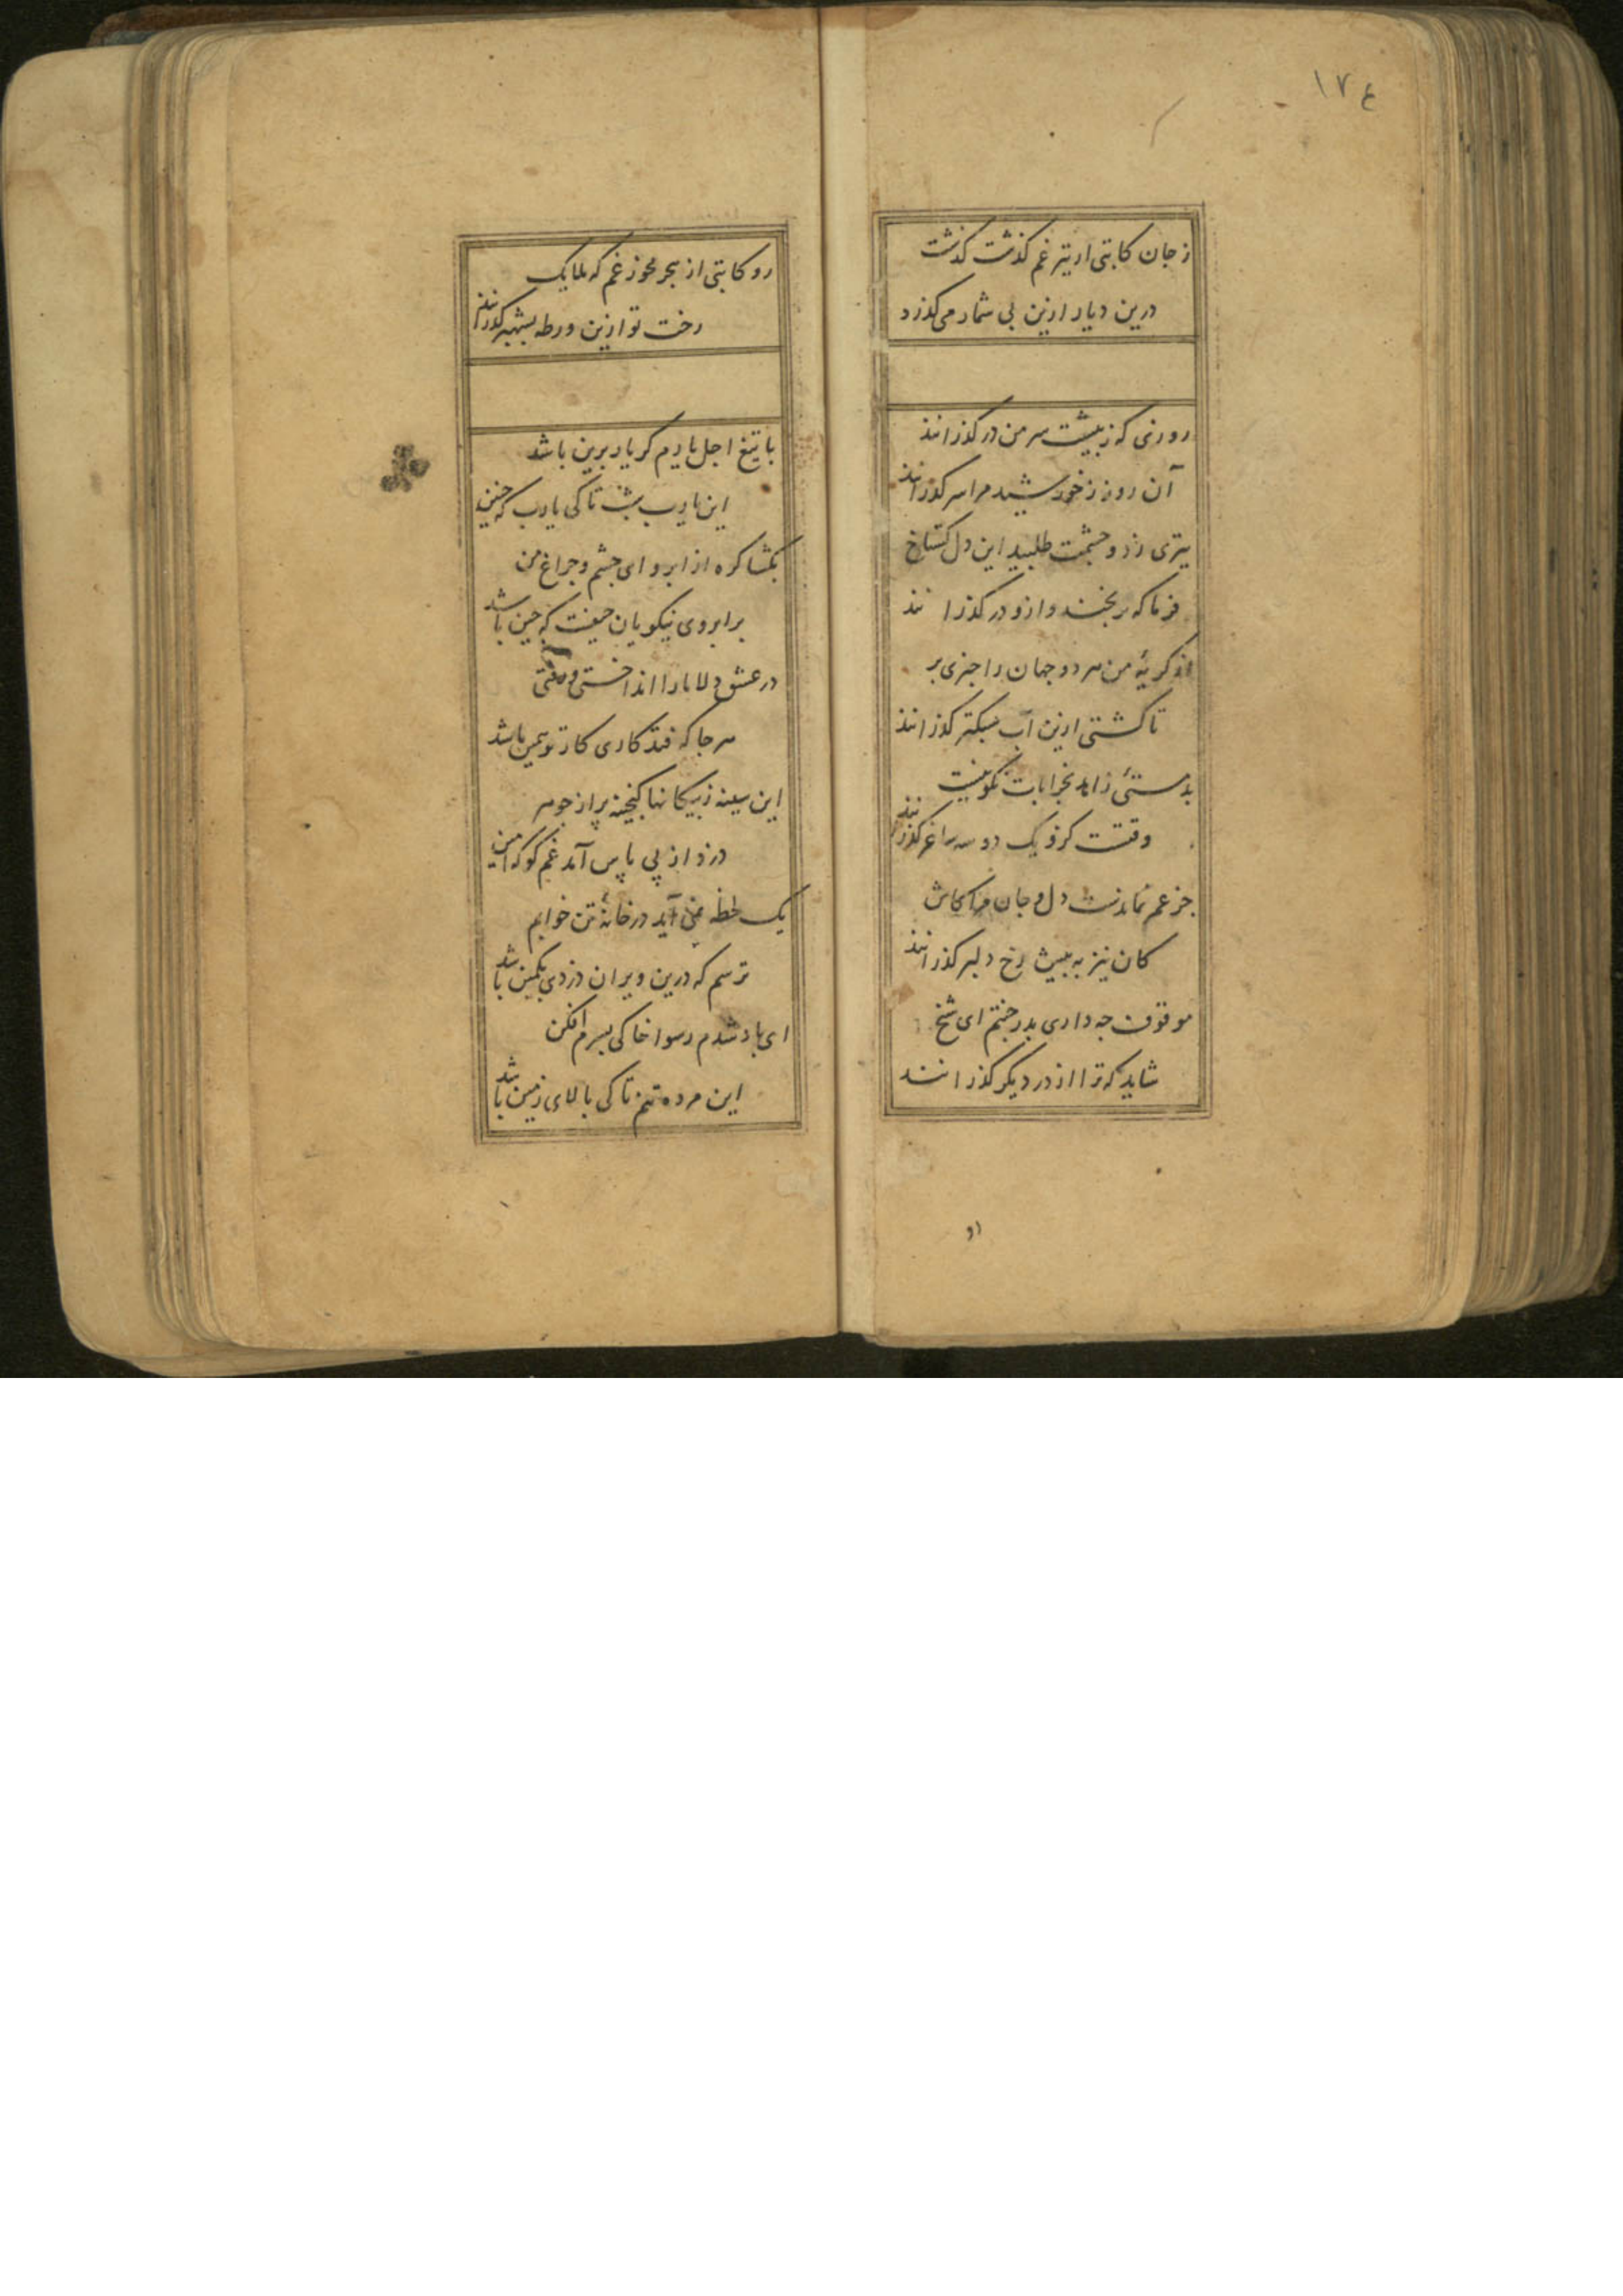 ١٧٤
ز جان کاتبی ار تیر غم کذشت کذشت
درین دیار ازین بی شمار می کذرد
روزی که ز پیشت سر من در کذرانند
آن روز ز خورشید مرا سر کذرانند
تیری ز دو چشمت طلبید این دل کستاخ
فرما که ببخشند و ازو در کذرانند
از کریۀ من هر دو جهان را خبری بر
تا کشتی ازین آب سبکتر کذرانند
بدمستئ زاهد بخرابات نکو نیست
وقتست کزو یک دو سه ساغر کذرانند
جز غم نماندست دل و جان مرا کاش
کان نیز به پیش رخ دلبر کذرانند
موقوف چه داری بدر ختم ای شیخ
شاید که ترا از در دیکر کذرانند
رو کاتبی از بحر مخور غم که ملایک
رخت تو ازین ورطه بشهپر کذرانند
با تیغ اجل یارم کر یار برین باشد
این یارب شب تا کی یارب که چنین
بکشا کره از ابرو ای چشم و چراغ من
بر ابروی نیکویان حیفست که چین باشد
در عشق دلا ما را انداختی و رفتی
هر جا که فتد کاری کار تو همین باشد
این سینه ز پیکانها کنجینه پر از جوهر
دزد از پی پاس آمد غم کو که امین
یک لحظه نمی آید در خانۀ تن خوابم
ترسم که درین ویران دزدی بکمین باشد
ای باد شدم رسوا خاکی بسرم افکن
این مرده تنم تا کی بالای زمین باشد